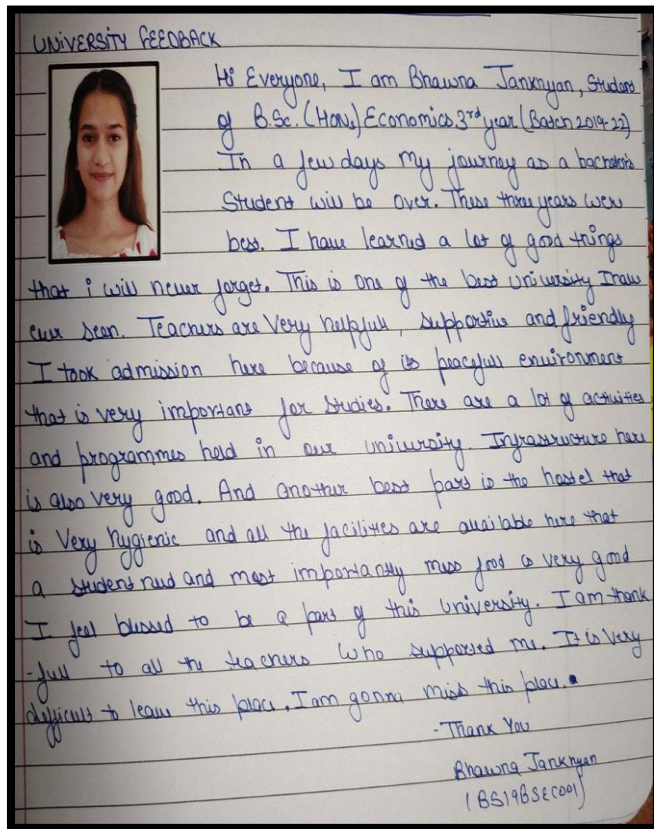 UNIVERSITY FEEDBACK
Hi Everyone, I am Bhawna Janknyan, Student
of B.Sc. (HONS) Economics 3rd year (Batch 2019-22)
In a few days my journey as a bachelors
Student will be over. These three years were
best. I have learned a lot of good things
that i will never forget. This is one of the best university I have
ever seen. Teachers are Very helpfull, supportive and friendly
I took admission here because of its peacefull environment
that is very important for studies. There are a lot of activities
and programmes held in our university. Infrastructure here
is also very good. And another best part is the hostel that
is Very hygienic and all the facilities are available here that
a student need and most importantly mess food is very good
I feel blessed to be a part of this university. I am thank
-full to all the teachers who supported me. It is very
difficult to leave this place. I am gonna miss this place.
- Thank You
Bhawna Janknyan
(BS19BSEC001)